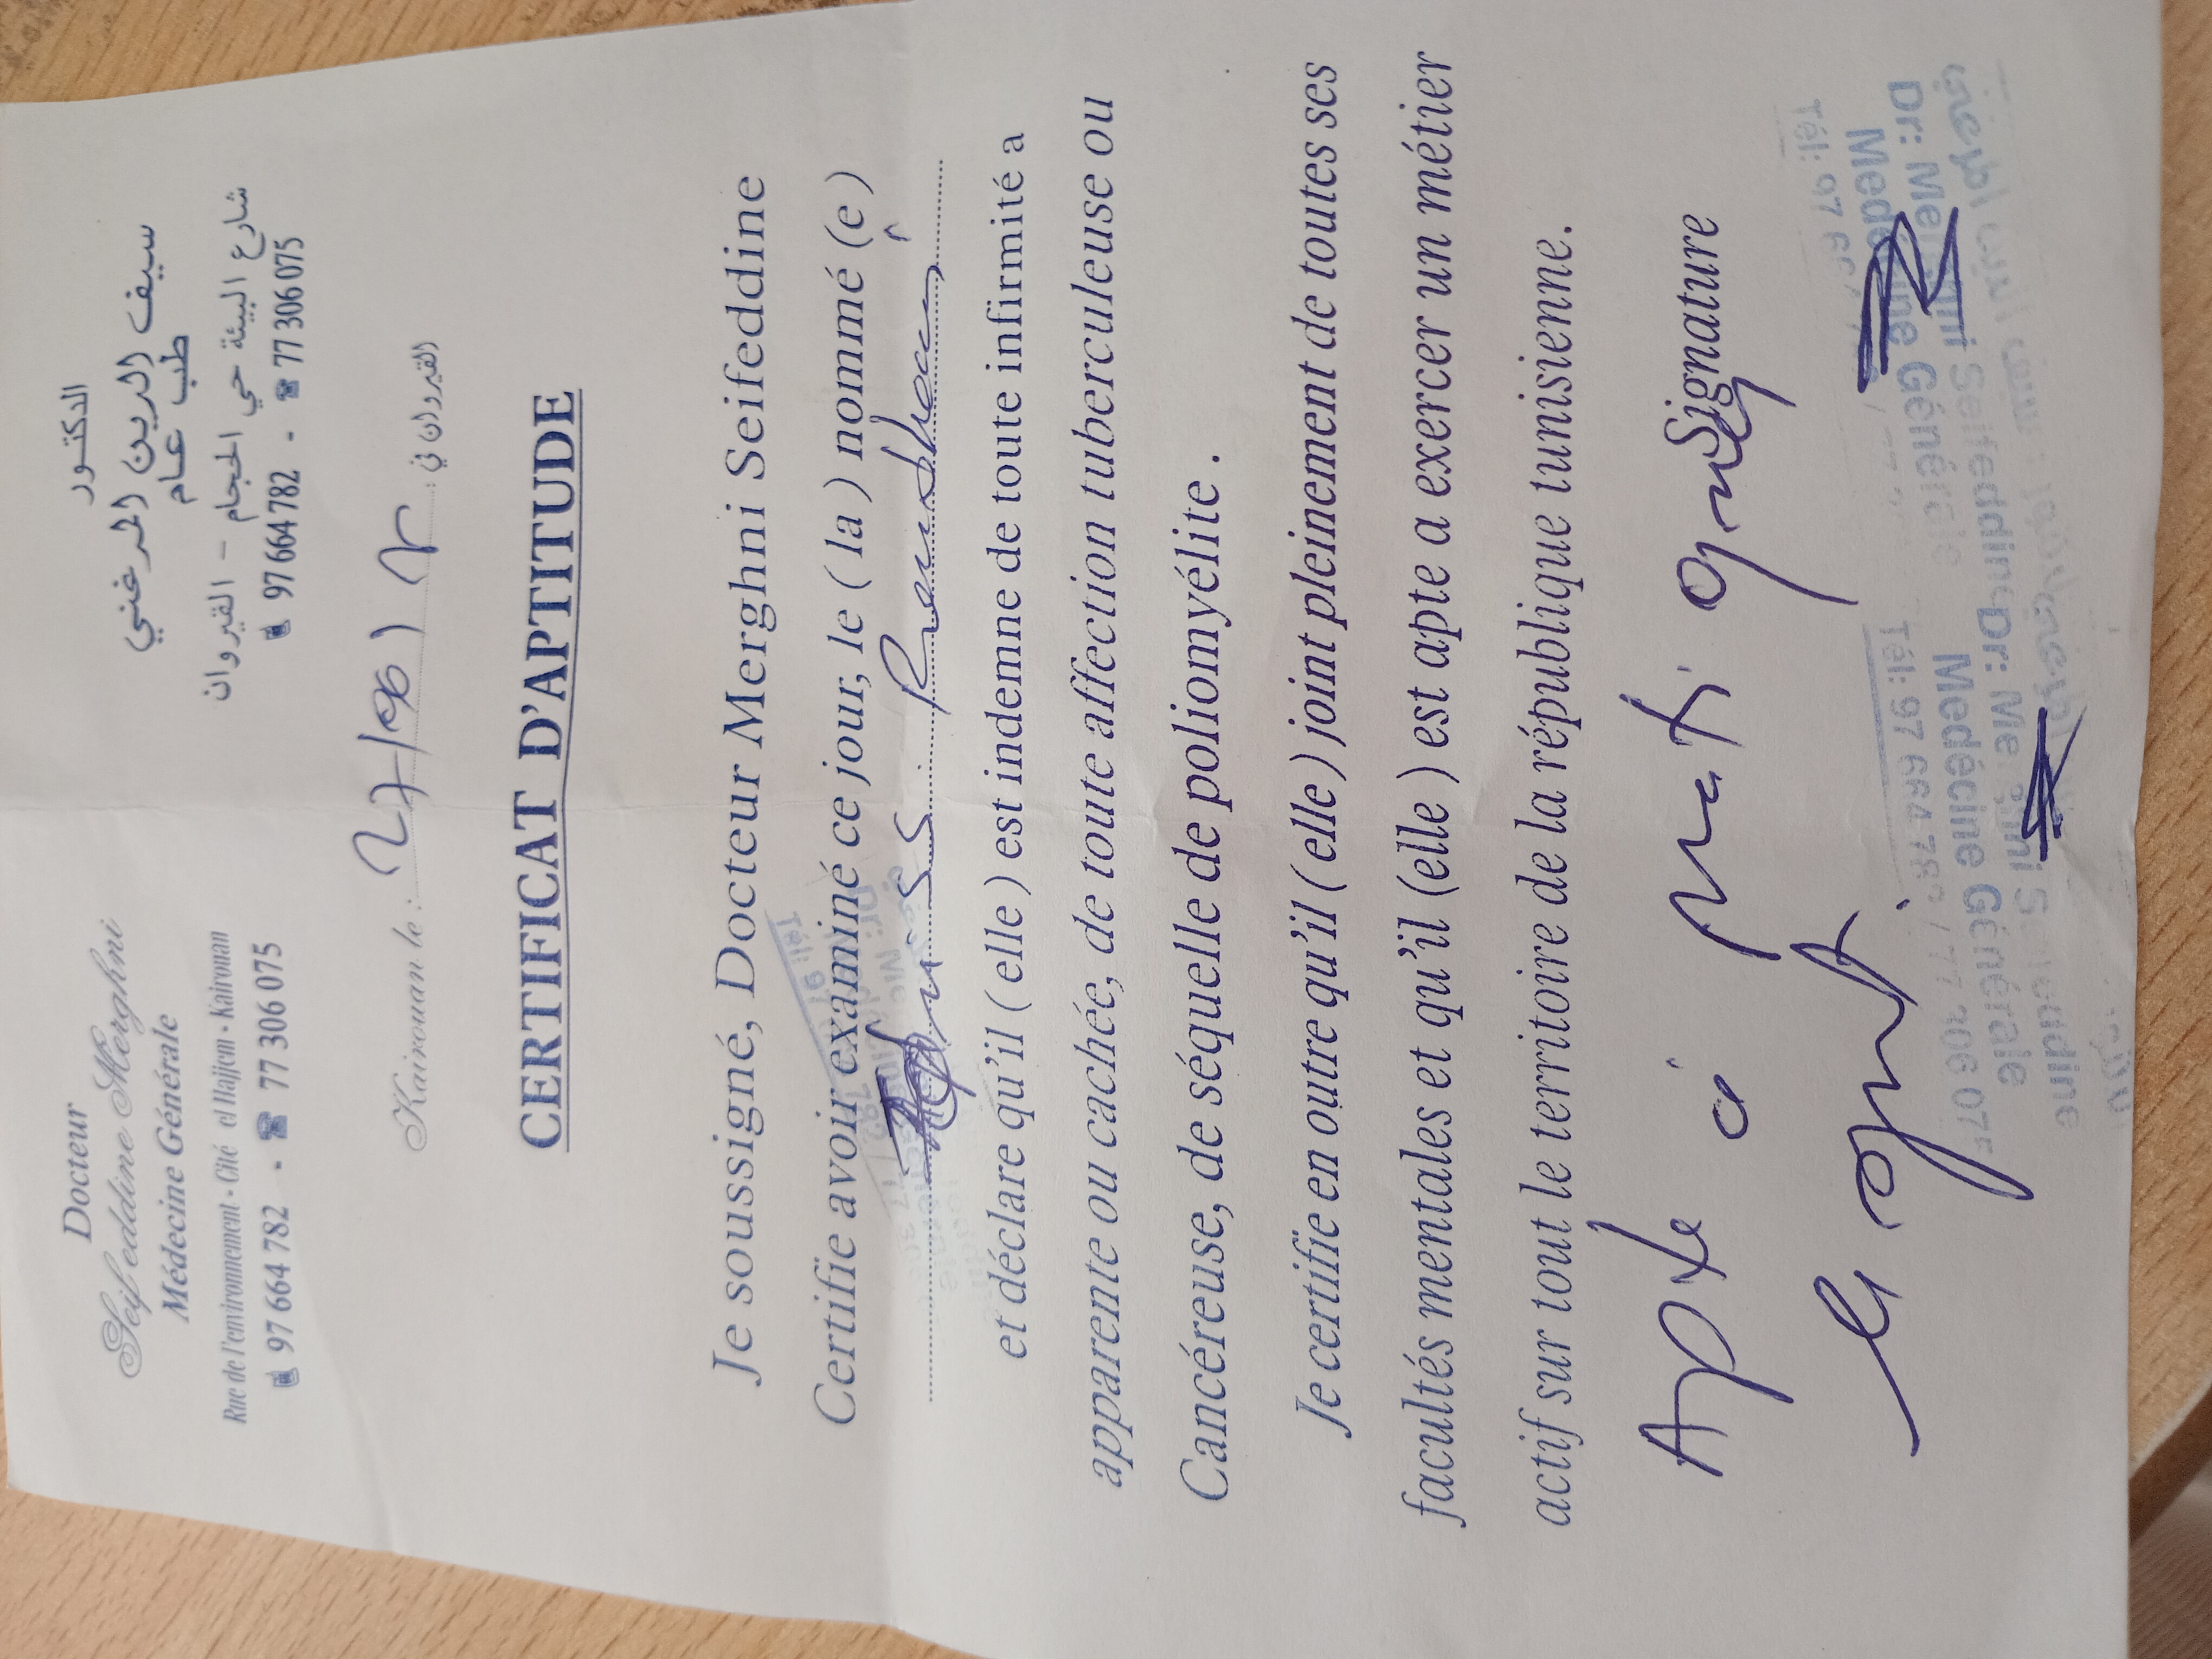 Docteur
Seifeddine Merghni
Médecine Générale
Rue de l'environnement - Cité el Hajjem - Kairouan
97 664 782 - 77 306 075
الدكتور
سيف الدين المرغني
طب عام
شارع البيئة حي الحجام - القيروان
97 664 782 - 77 306 075
Kairouan le : القيروان في :
CERTIFICAT D'APTITUDE
Je soussigné, Docteur Merghni Seifeddine
Certifie avoir examiné ce jour, le ( la ) nommé (e )
et déclare qu'il ( elle ) est indemne de toute infirmité a
apparente ou cachée, de toute affection tuberculeuse ou
Cancéreuse, de séquelle de poliomyélite .
Je certifie en outre qu'il ( elle ) joint pleinement de toutes ses
facultés mentales et qu'il (elle ) est apte a exercer un métier
actif sur tout le territoire de la républlique tunisienne.
Signature
Apte à
Dr: Merghni Seifeddine
Médecine Générale
Tél: 97 664 782 / 77 306 075